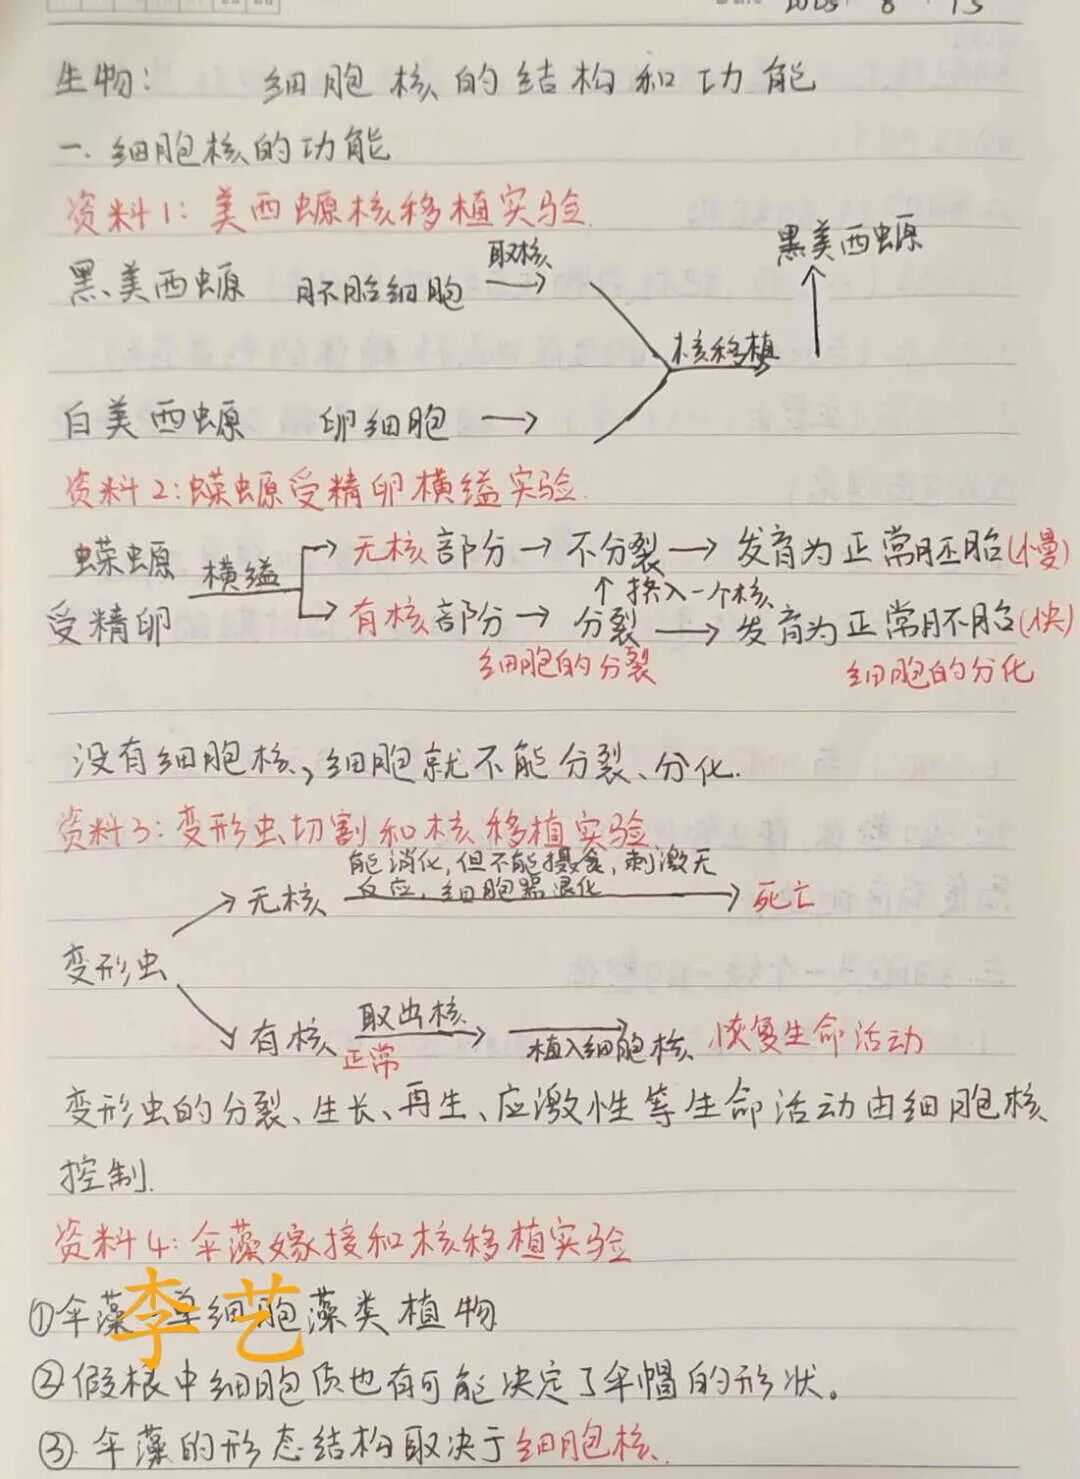 2025. 8. 15
生物: 细胞核的结构和功能
一. 细胞核的功能
资料1: 美西螈核移植实验.
黑美西螈
黑美西螈 胚胎细胞 取核→
核移植
白美西螈 卵细胞 →
资料2: 蝾螈受精卵横缢实验.
蝾螈 横缢 无核部分→不分裂→发育为正常胚胎(慢)
↑换入一个核
受精卵 有核部分→分裂→发育为正常胚胎(快)
细胞的分裂 细胞的分化
没有细胞核, 细胞就不能分裂、分化.
资料3: 变形虫切割和核移植实验.
能消化, 但不能摄食, 刺激无
→无核 反应, 细胞器退化→死亡
变形虫
有核 取出核→ 植入细胞核 恢复生命活动
正常
变形虫的分裂、生长、再生、应激性等生命活动由细胞核
控制.
资料4: 伞藻嫁接和核移植实验
李艺
①伞藻 单细胞藻类植物
②假根中细胞质也有可能决定了伞帽的形状。
③. 伞藻的形态结构取决于细胞核.